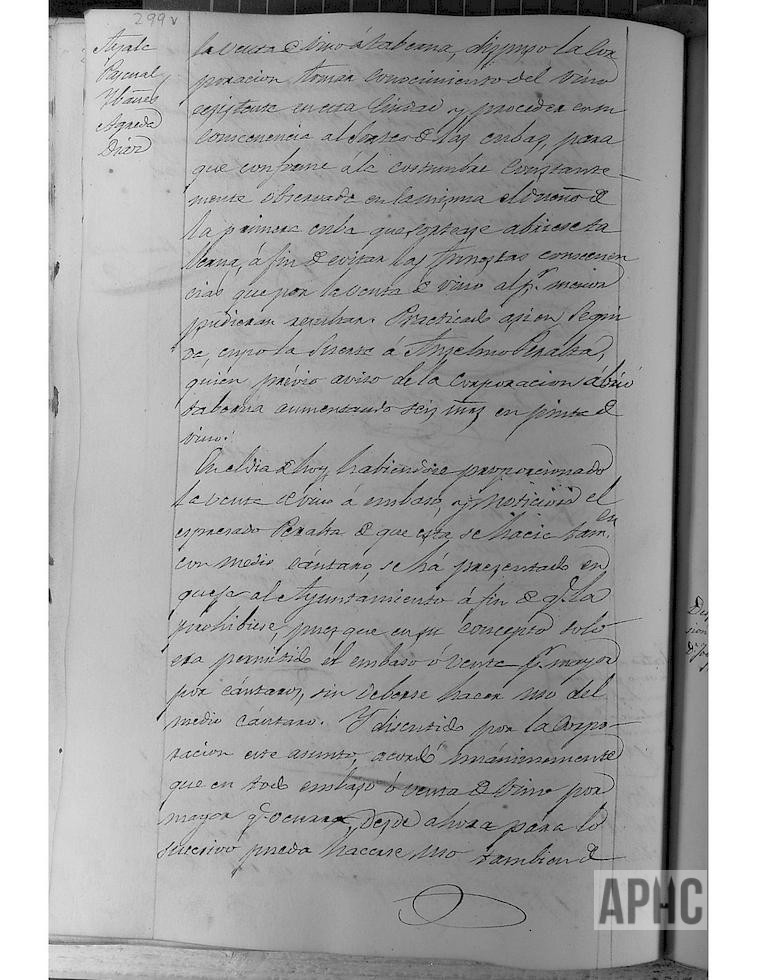 299 v
Ayala
Pascual
Ybañes
Agreda
Diaz
la venta de vino á taberna, dispuso la Cor
poracion tomar conocimiento del vino
ecsistente en esta Ciudad y proceder en su
consecuencia al sorteo de las cubas para
que conforme á la costumbre constante-
mente observada en la misma el dueño de
la primera cuba que sortease abriese ta
berna, á fin de evitar las funestas consecuen
cias que por la venta de vino al pr. menor
pudieran resultar. Practicado asi en segui
da, cupo la suerte á Anselmo Peralta,
quien prévio aviso de la Corporacion abrió
taberna aumentando seis mrs en pinta de
vino.
En el dia de hoy, habiendose proporcionado
la venta de vino a embaso, y noticioso el
espresado Peralta de que esta se hacia tam.en
con medio cántaro, se há presentado en
queja al Ayuntamiento á fin de q. la
prohibiese, pues que en su concepto solo
era permitido el embaso ó venta pr. mayor
por cántaros, sin deberse hacer uso del
medio cántaro. Y discutido por la Corpo-
racion este asunto, acordó unánimemente
que en todo embaso ó venta de vino por
mayor q. ocurra, desde ahora para lo
sucesivo pueda hacerse uso tambien de
APHC